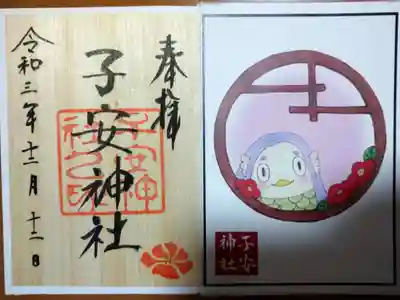 奉拝
子安神社
令和三年十二月十二日
子安神
社之印
子安
神社